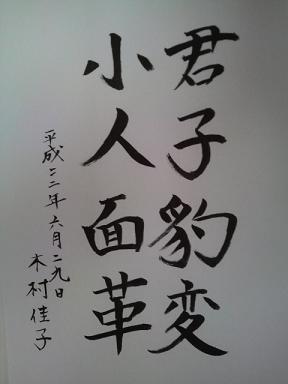 君子豹変
小人面革
平成二二年六月二九日
木村佳子